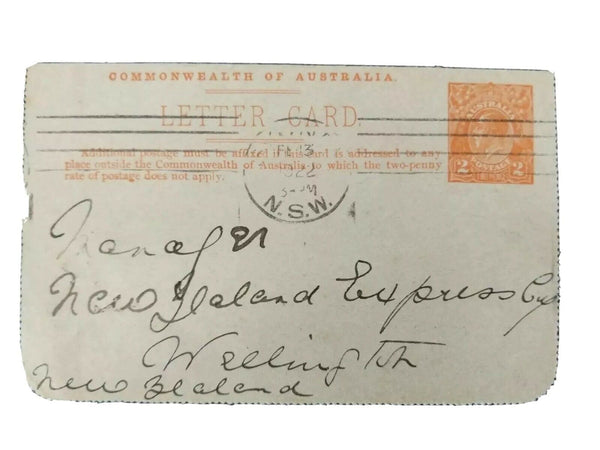 COMMONWEALTH OF AUSTRALIA.
LETTER CARD.
Additional postage must be affixed if this card is addressed to any
place outside the Commonwealth of Australia to which the two-penny
rate of postage does not apply.
AUSTRALIA
2 2
POSTAGE
13
N.S.W.
Manager
New Zealand Express Coy
Wellington
New Zealand